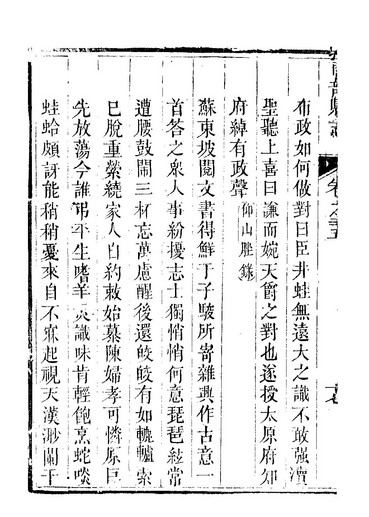 卷之
布政如何做對曰臣井蛙無遠大之識不敢强瀆
聖聽上喜曰謙而婉天爵之對也遂授太原府知
府綽有政聲仰山脞錄
蘇東坡閱文書得鮮于子駿所寄雜興作古意一
首答之衆人事紛擾志士獨悄悄何意琵琶絃常
遭腰鼓鬧三杯忘萬慮醒後還皎皎有如轆轤索
已脫重縈繞家人自約敕始慕陳婦孝可憐原巨
先放蕩今誰弔平生嗜羊炙識味肯輕飽烹蛇啖
蛙蛤頗訝能稍稍憂來自不寐起視天漢渺闌干